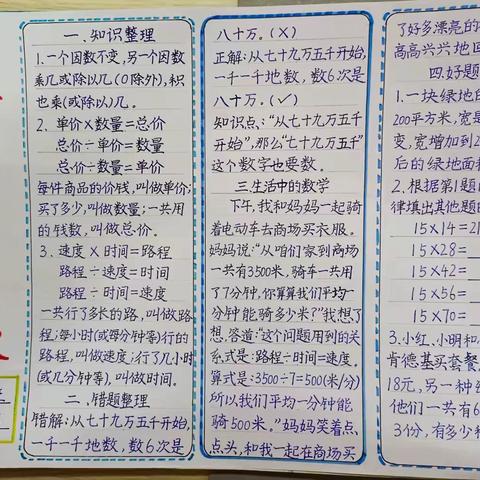 一、知识整理
1.一个因数不变,另一个因数
乘几或除以几(0除外),积
也乘(或除以)几。
2、单价×数量=总价
总价÷单价=数量
总价÷数量=单价
每件商品的价钱,叫做单价;
买了多少,叫做数量;一共用
的钱数,叫做总价。
3、速度×时间=路程
路程÷速度=时间
路程÷时间=速度
一共行了多长的路,叫做路
程;每小时(或每分钟等)行的
路程,叫做速度;行了几小时
(或几分钟等),叫做时间。
二、错题整理
错解:从七十九万五千开始,
一千一千地数,数6次是
八十万。(×)
正解:从七十九万五千开始,
一千一千地数,数6次是
八十万。(√)
知识点:“从七十九万五千
开始”,那么“七十九万五千”
这个数字也要数。
三生活中的数学
下午,我和妈妈一起骑
着电动车去商场买衣服。
妈妈说:“从咱们家到商场
一共有3500米,骑车一共用
了7分钟,你算算我们平均一
分钟能骑多少米?”我想了
想,答道:“这个问题用到的关
系式是:路程÷时间=速度。
算式是:3500÷7=500(米/分)
所以我们平均一分钟能
骑500米。”妈妈笑着点
点头,和我一起在商场买
了好多漂亮的
高高兴兴地回
四.好题
1.一块绿地的
200平方米,宽是
变,宽增加到2
后的绿地面积
2.根据第1题的
律填出其他题的
15×14=21
15×28=
15×42=
15×56=
15×70=
3.小红、小明和
肯德基买套餐,
18元,另一种
他们一共有6
3份,有多少种